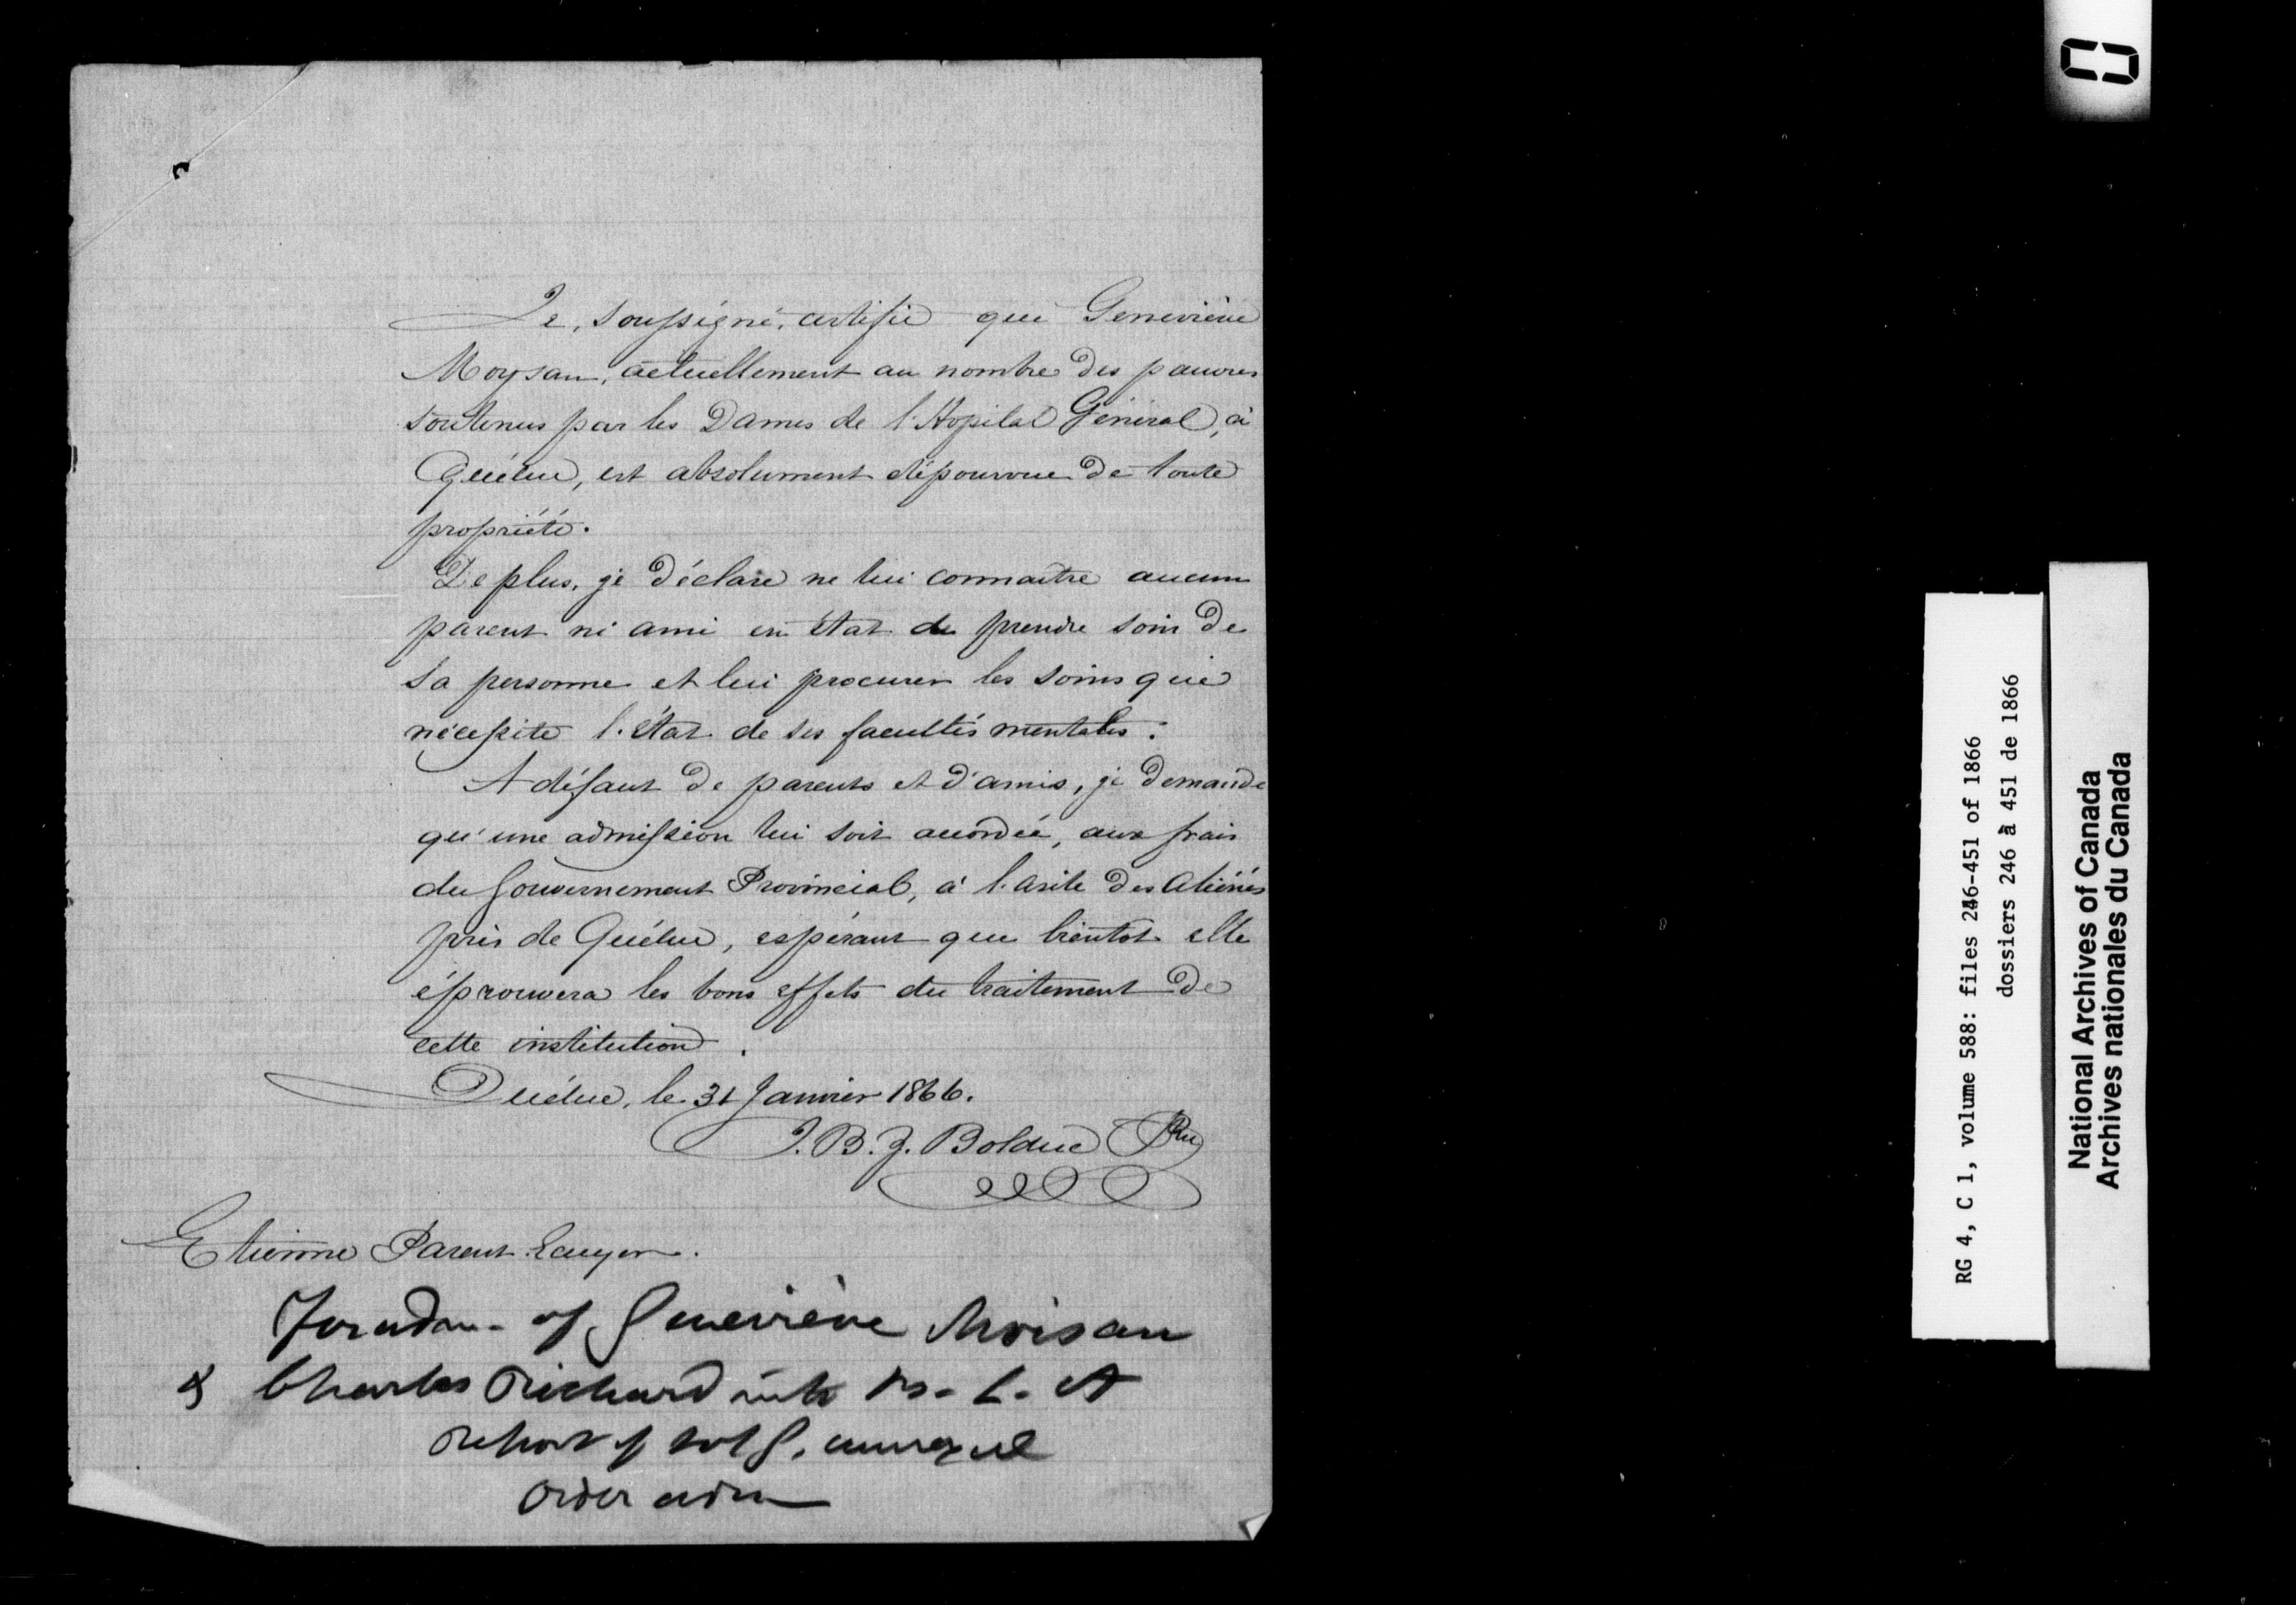 Je, soussigné, certifie que Geneviève
Moysan, actuellement au nombre des pauvres
soutenus par les Dames de l'Hopital Général, à
Québec, est absolument dépourvue de toute
propriété.
De plus, je déclare ne lui connaitre aucun
parent ni ami en état de prendre soin de
sa personne et lui procurer les soins que
nécessite l'état de ses facultés mentales.
A défaut de parents et d'amis, je demande
qu'une admission lui soit accordée, aux frais
du Gouvernement Provincial, à l'asile des aliénés
près de Québec, espérant que bientot elle
éprouvera les bons effets du traitement de
cette institution.
Québec, le 31 Janvier 1866.
J. B. Z. Bolduc Ptre
Etienne Parent Ecuyer.
For adm- of Geneviève Moisan
& Charles Richard into
Report of annexed
Order adm
RG 4, C 1, volume 588: files 246-451 of 1866
dossiers 246 à 451 de 1866
National Archives of Canada
Archives nationales du Canada